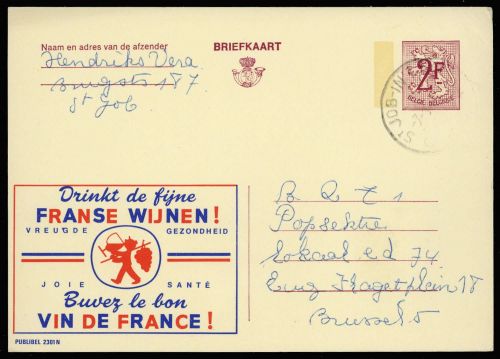 Naam en adres van de afzender
BRIEFKAART
Hendriks Vera
187
St Job
2F
BELGIE-BELGIQUE
ST JOB-IN
Drinkt de fijne
FRANSE WIJNEN!
VREUGDE GEZONDHEID
JOIE SANTÉ
Buvez le bon
VIN DE FRANCE!
PUBLIBEL 2301N
B R T 1
Popsektie
Lokaal ed 74
Eug Flageyplein 18
Brussel 5